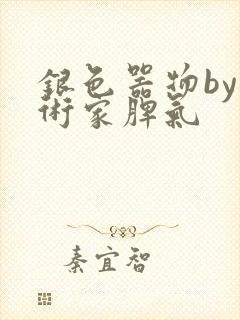 銀色器物by
術家脾氣
秦宜智